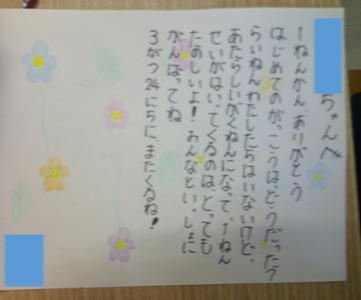 ちゃんへ
1ねんかんありがとう
はじめてのがっこうは、どうだった?
らいねんわたしたちはいないけど、
あたらしいがくねんになって、1ねん
せいがはいってくるのは、とっても
たのしいよ!みんなといっしょに
がんばってね
3がつ24にちに、またくるね!